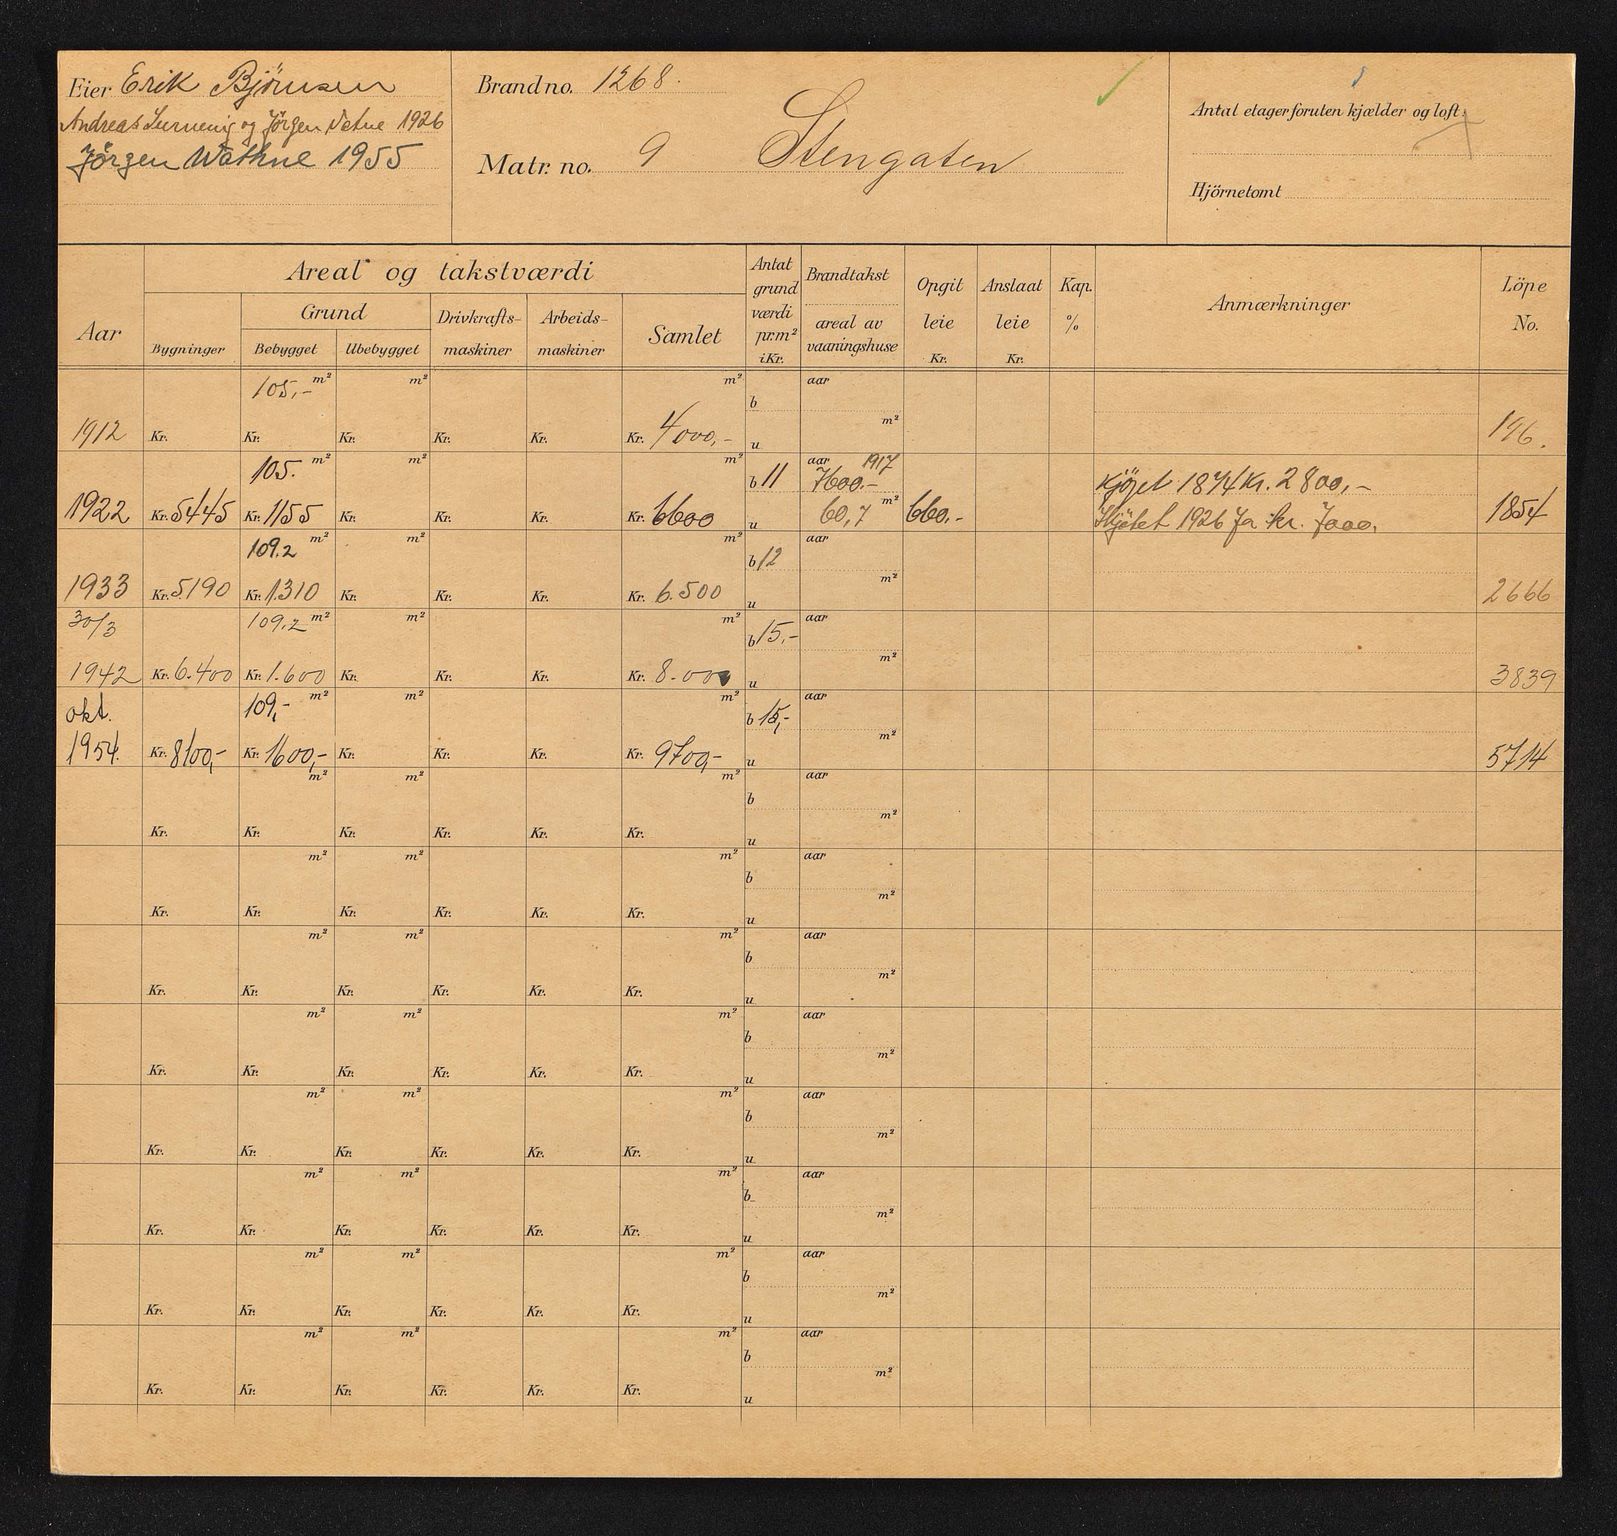 Eier Erik Björnsen
Andreas og Jörgen 1926
Jörgen Wathne 1955
Brand no. 1268.
Matr. no. 9 Stengaten
Antal etager foruten kjælder og loft:
Hjörnetomt
Aar
Areal og takstværdi
Bygninger
Grund
Bebygget
Ubebygget
Drivkrafts-
maskiner
Arbeids-
maskiner
Samlet
Antat
grund
værdi
pr. m²
i Kr.
Brandtakst
areal av
vaaningshuse
Opgit
leie
Kr.
Anslaat
leie
Kr.
Kap.
%
Anmærkninger
Löpe
No.
105,- m² m² m² aar
b
m²
1912 Kr. Kr. Kr. Kr. Kr. Kr. 4000,- u 196.
105. m² m² m² b 11 aar 1917
7600.- Kjöpt 1874 Kr. 2800,-
1922 Kr. 5445 Kr. 1155 Kr. Kr. Kr. Kr. 6600 u 60,7 m² 660.- 1926 kr. 7000. 1854
109.2 m² m² m² b 12 aar
m²
1933 Kr. 5190 Kr. 1.310 Kr. Kr. Kr. Kr. 6.500 u 2666
30/3 109.2 m² m² m² b 15,- aar
m²
1942 Kr. 6.400 Kr. 1.600 Kr. Kr. Kr. Kr. 8.000 u 3839
okt. 109,- m² m² m² b 15,- aar
m²
1954. Kr. 8100,- Kr. 1600,- Kr. Kr. Kr. Kr. 9700,- u 5714
m² m² m² aar
b
m²
Kr. Kr. Kr. Kr. Kr. Kr. u
m² m² m² aar
b
m²
Kr. Kr. Kr. Kr. Kr. Kr. u
m² m² m² aar
b
m²
Kr. Kr. Kr. Kr. Kr. Kr. u
m² m² m² aar
b
m²
Kr. Kr. Kr. Kr. Kr. Kr. u
m² m² m² aar
b
m²
Kr. Kr. Kr. Kr. Kr. Kr. u
m² m² m² aar
b
m²
Kr. Kr. Kr. Kr. Kr. Kr. u
m² m² m² aar
b
m²
Kr. Kr. Kr. Kr. Kr. Kr. u
m² m² m² aar
b
m²
Kr. Kr. Kr. Kr. Kr. Kr. u